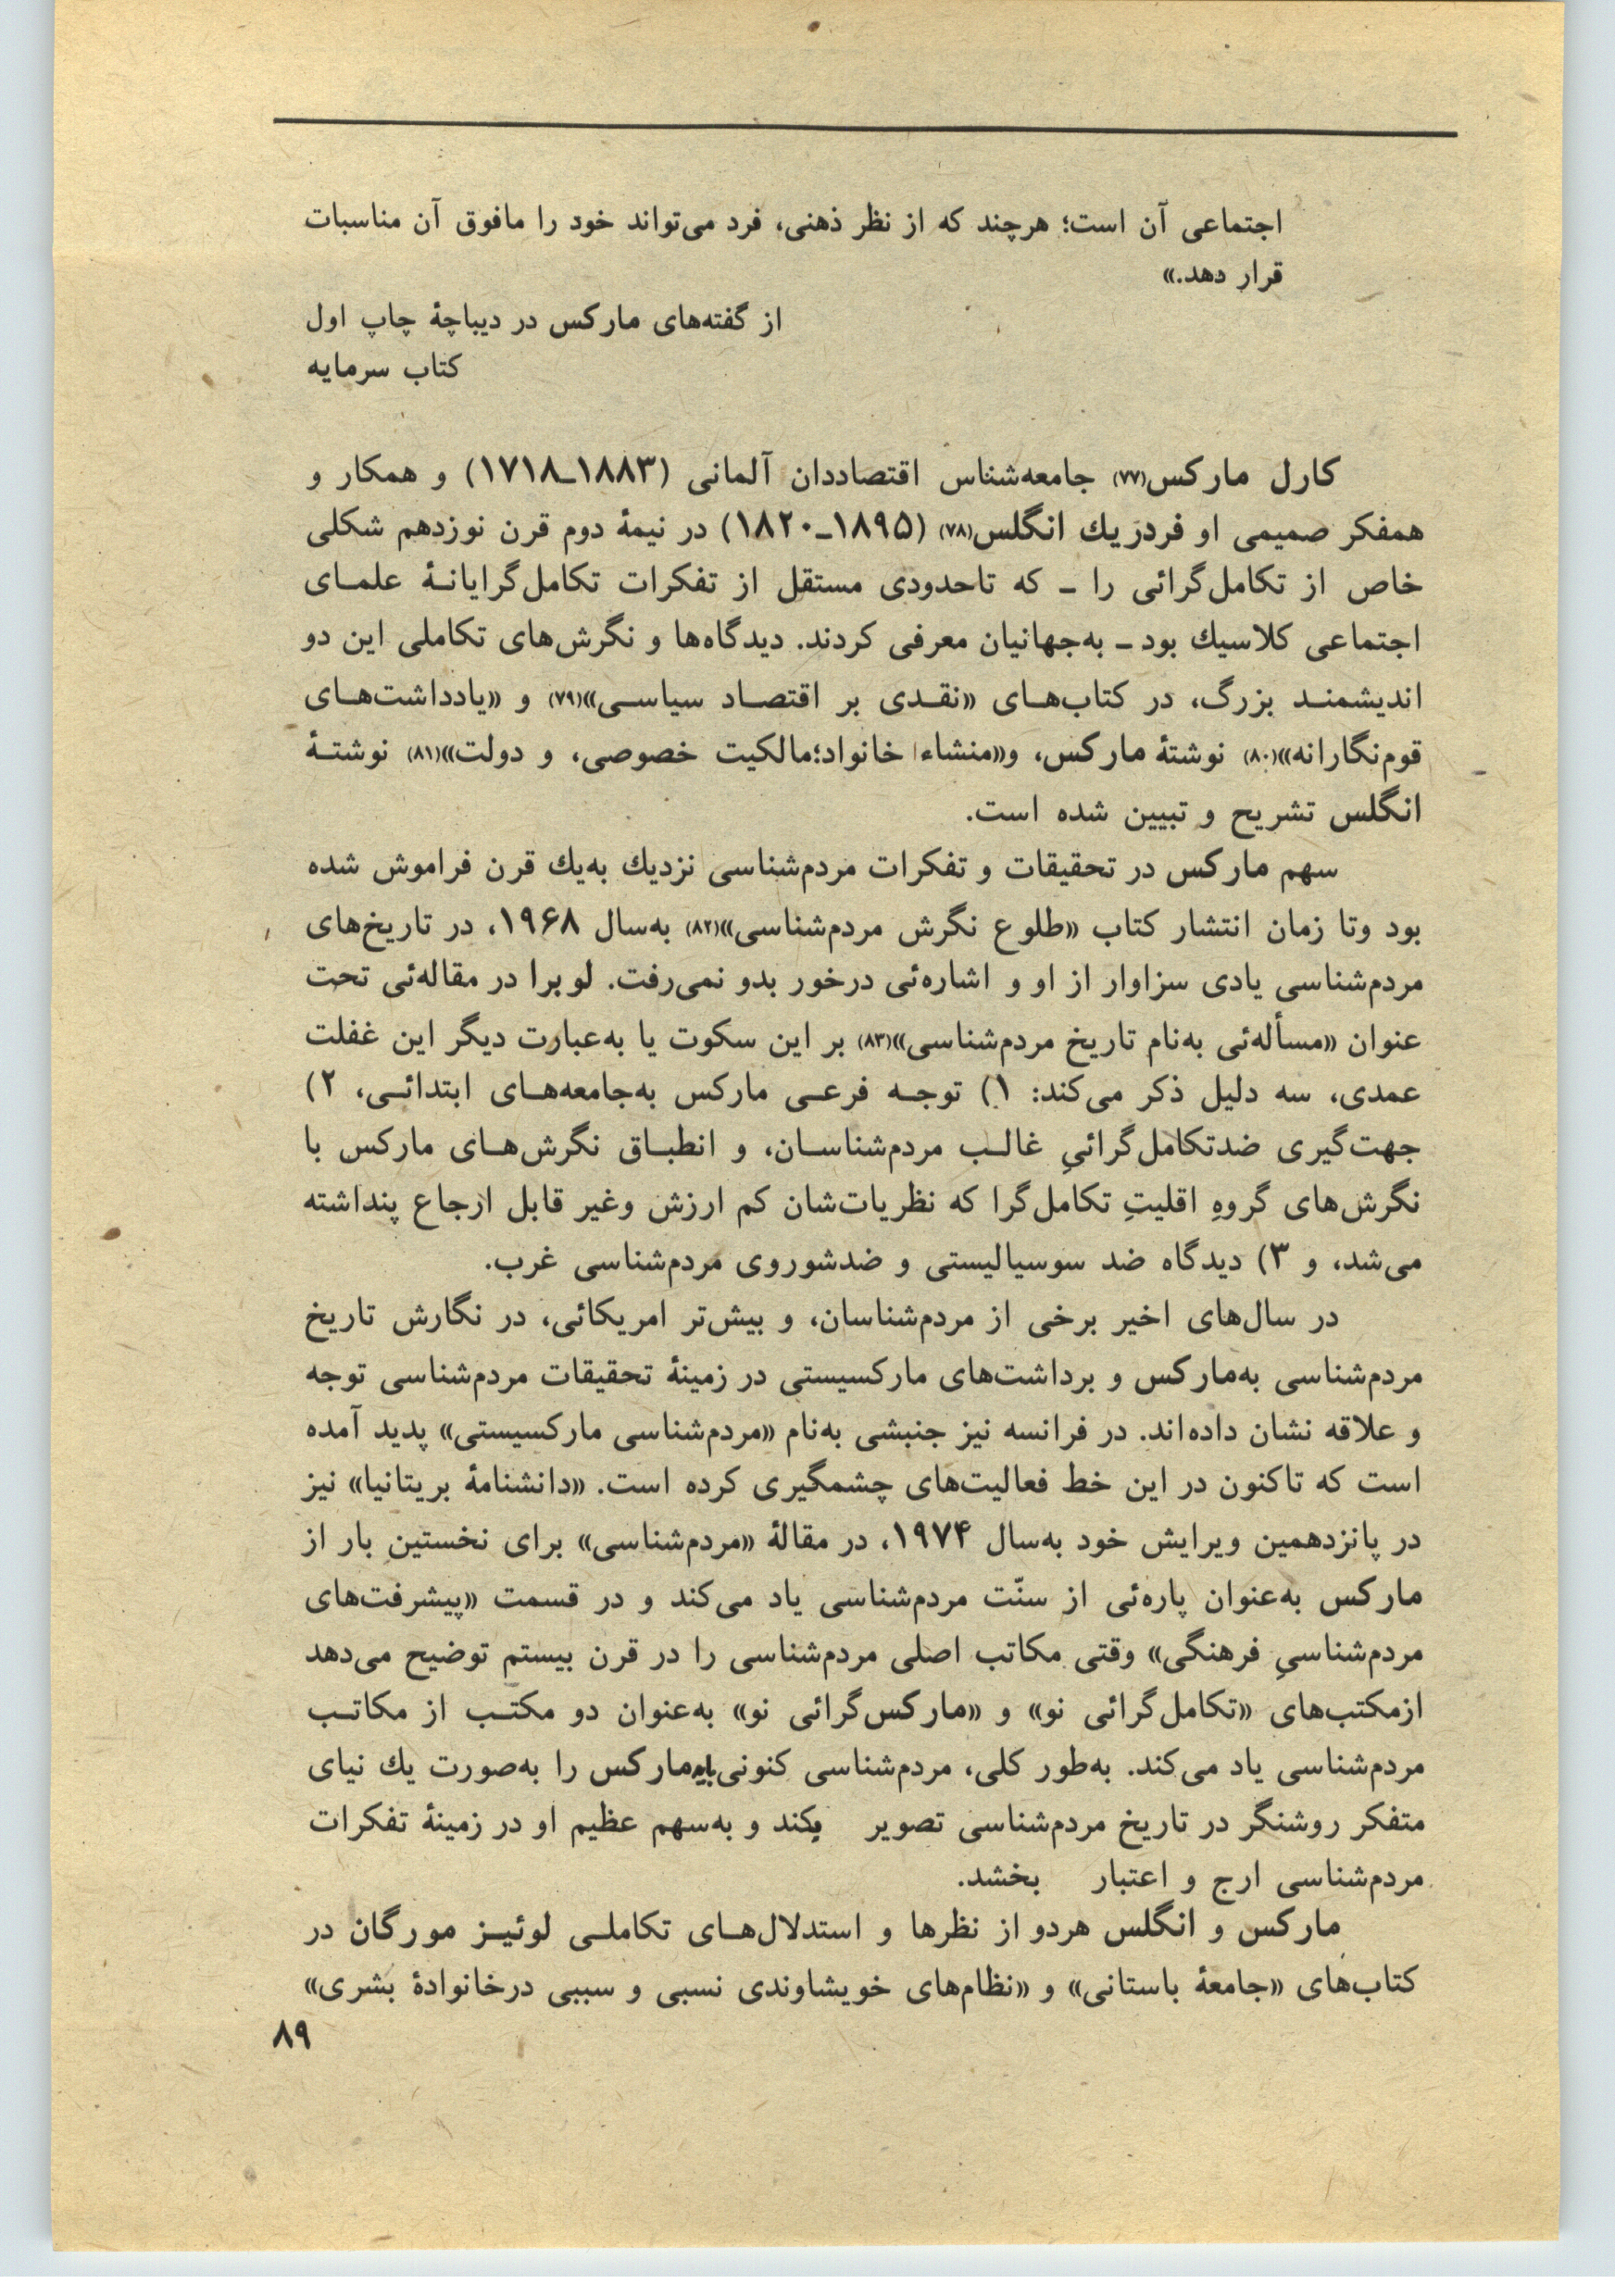 اجتماعی آن است؛ هرچند که از نظر ذهنی، فرد می‌تواند خود را مافوق آن مناسبات
قرار دهد.»
از گفته‌های مارکس در دیباچهٔ چاپ اول
کتاب سرمایه
کارل مارکس(۷۷) جامعه‌شناس اقتصاددان آلمانی (۱۸۸۳ـ۱۷۱۸) و همکار و
همفکر صمیمی او فردریك انگلس(۷۸) (۱۸۹۵ـ۱۸۲۰) در نیمهٔ دوم قرن نوزدهم شکلی
خاص از تکامل‌گرائی را ـ که تاحدودی مستقل از تفکرات تکامل‌گرایانـهٔ علمـای
اجتماعی کلاسیك بود ـ به‌جهانیان معرفی کردند. دیدگاه‌ها و نگرش‌های تکاملی این دو
اندیشمنـد بزرگ، در کتاب‌هـای «نقـدی بر اقتصـاد سیاسـی»(۷۹) و «یادداشت‌هـای
قوم‌نگارانه»(۸۰) نوشتهٔ مارکس، و«منشاء خانواد؛مالکیت خصوصی، و دولت»(۸۱) نوشتـهٔ
انگلس تشریح و تبیین شده است.
سهم مارکس در تحقیقات و تفکرات مردم‌شناسی نزدیك به‌یك قرن فراموش شده
بود وتا زمان انتشار کتاب «طلوع نگرش مردم‌شناسی»(۸۲) به‌سال ۱۹۶۸، در تاریخ‌های
مردم‌شناسی یادی سزاوار از او و اشاره‌ئی درخور بدو نمی‌رفت. لوبرا در مقاله‌ئی تحت
عنوان «مسأله‌ئی به‌نام تاریخ مردم‌شناسی»(۸۳) بر این سکوت یا به‌عبارت دیگر این غفلت
عمدی، سه دلیل ذکر می‌کند: ۱) توجـه فرعـی مارکس به‌جامعه‌هـای ابتدائـی، ۲)
جهت‌گیری ضدتکامل‌گرائیِ غالـب مردم‌شناسـان، و انطبـاق نگرش‌هـای مارکس با
نگرش‌های گروهِ اقلیتِ تکامل‌گرا که نظریات‌شان کم ارزش وغیر قابل ارجاع پنداشته
می‌شد، و ۳) دیدگاه ضد سوسیالیستی و ضدشوروی مردم‌شناسی غرب.
در سال‌های اخیر برخی از مردم‌شناسان، و بیش‌تر امریکائی، در نگارش تاریخ
مردم‌شناسی به‌مارکس و برداشت‌های مارکسیستی در زمینهٔ تحقیقات مردم‌شناسی توجه
و علاقه نشان داده‌اند. در فرانسه نیز جنبشی به‌نام «مردم‌شناسی مارکسیستی» پدید آمده
است که تاکنون در این خط فعالیت‌های چشمگیری کرده است. «دانشنامهٔ بریتانیا» نیز
در پانزدهمین ویرایش خود به‌سال ۱۹۷۴، در مقالهٔ «مردم‌شناسی» برای نخستین بار از
مارکس به‌عنوان پاره‌ئی از سنّت مردم‌شناسی یاد می‌کند و در قسمت «پیشرفت‌های
مردم‌شناسیِ فرهنگی» وقتی مکاتب اصلی مردم‌شناسی را در قرن بیستم توضیح می‌دهد
ازمکتب‌های «تکامل‌گرائی نو» و «مارکس‌گرائی نو» به‌عنوان دو مکتـب از مکاتـب
مردم‌شناسی یاد می‌کند. به‌طور کلی، مردم‌شناسی کنونی باید مارکس را به‌صورت یك نیای
متفکر روشنگر در تاریخ مردم‌شناسی تصویر کند و به‌سهم عظیم او در زمینهٔ تفکرات
مردم‌شناسی ارج و اعتبار بخشد.
مارکس و انگلس هردو از نظرها و استدلال‌هـای تکاملـی لوئیـز مورگان در
کتاب‌های «جامعهٔ باستانی» و «نظام‌های خویشاوندی نسبی و سببی درخانوادهٔ بشری»
۸۹